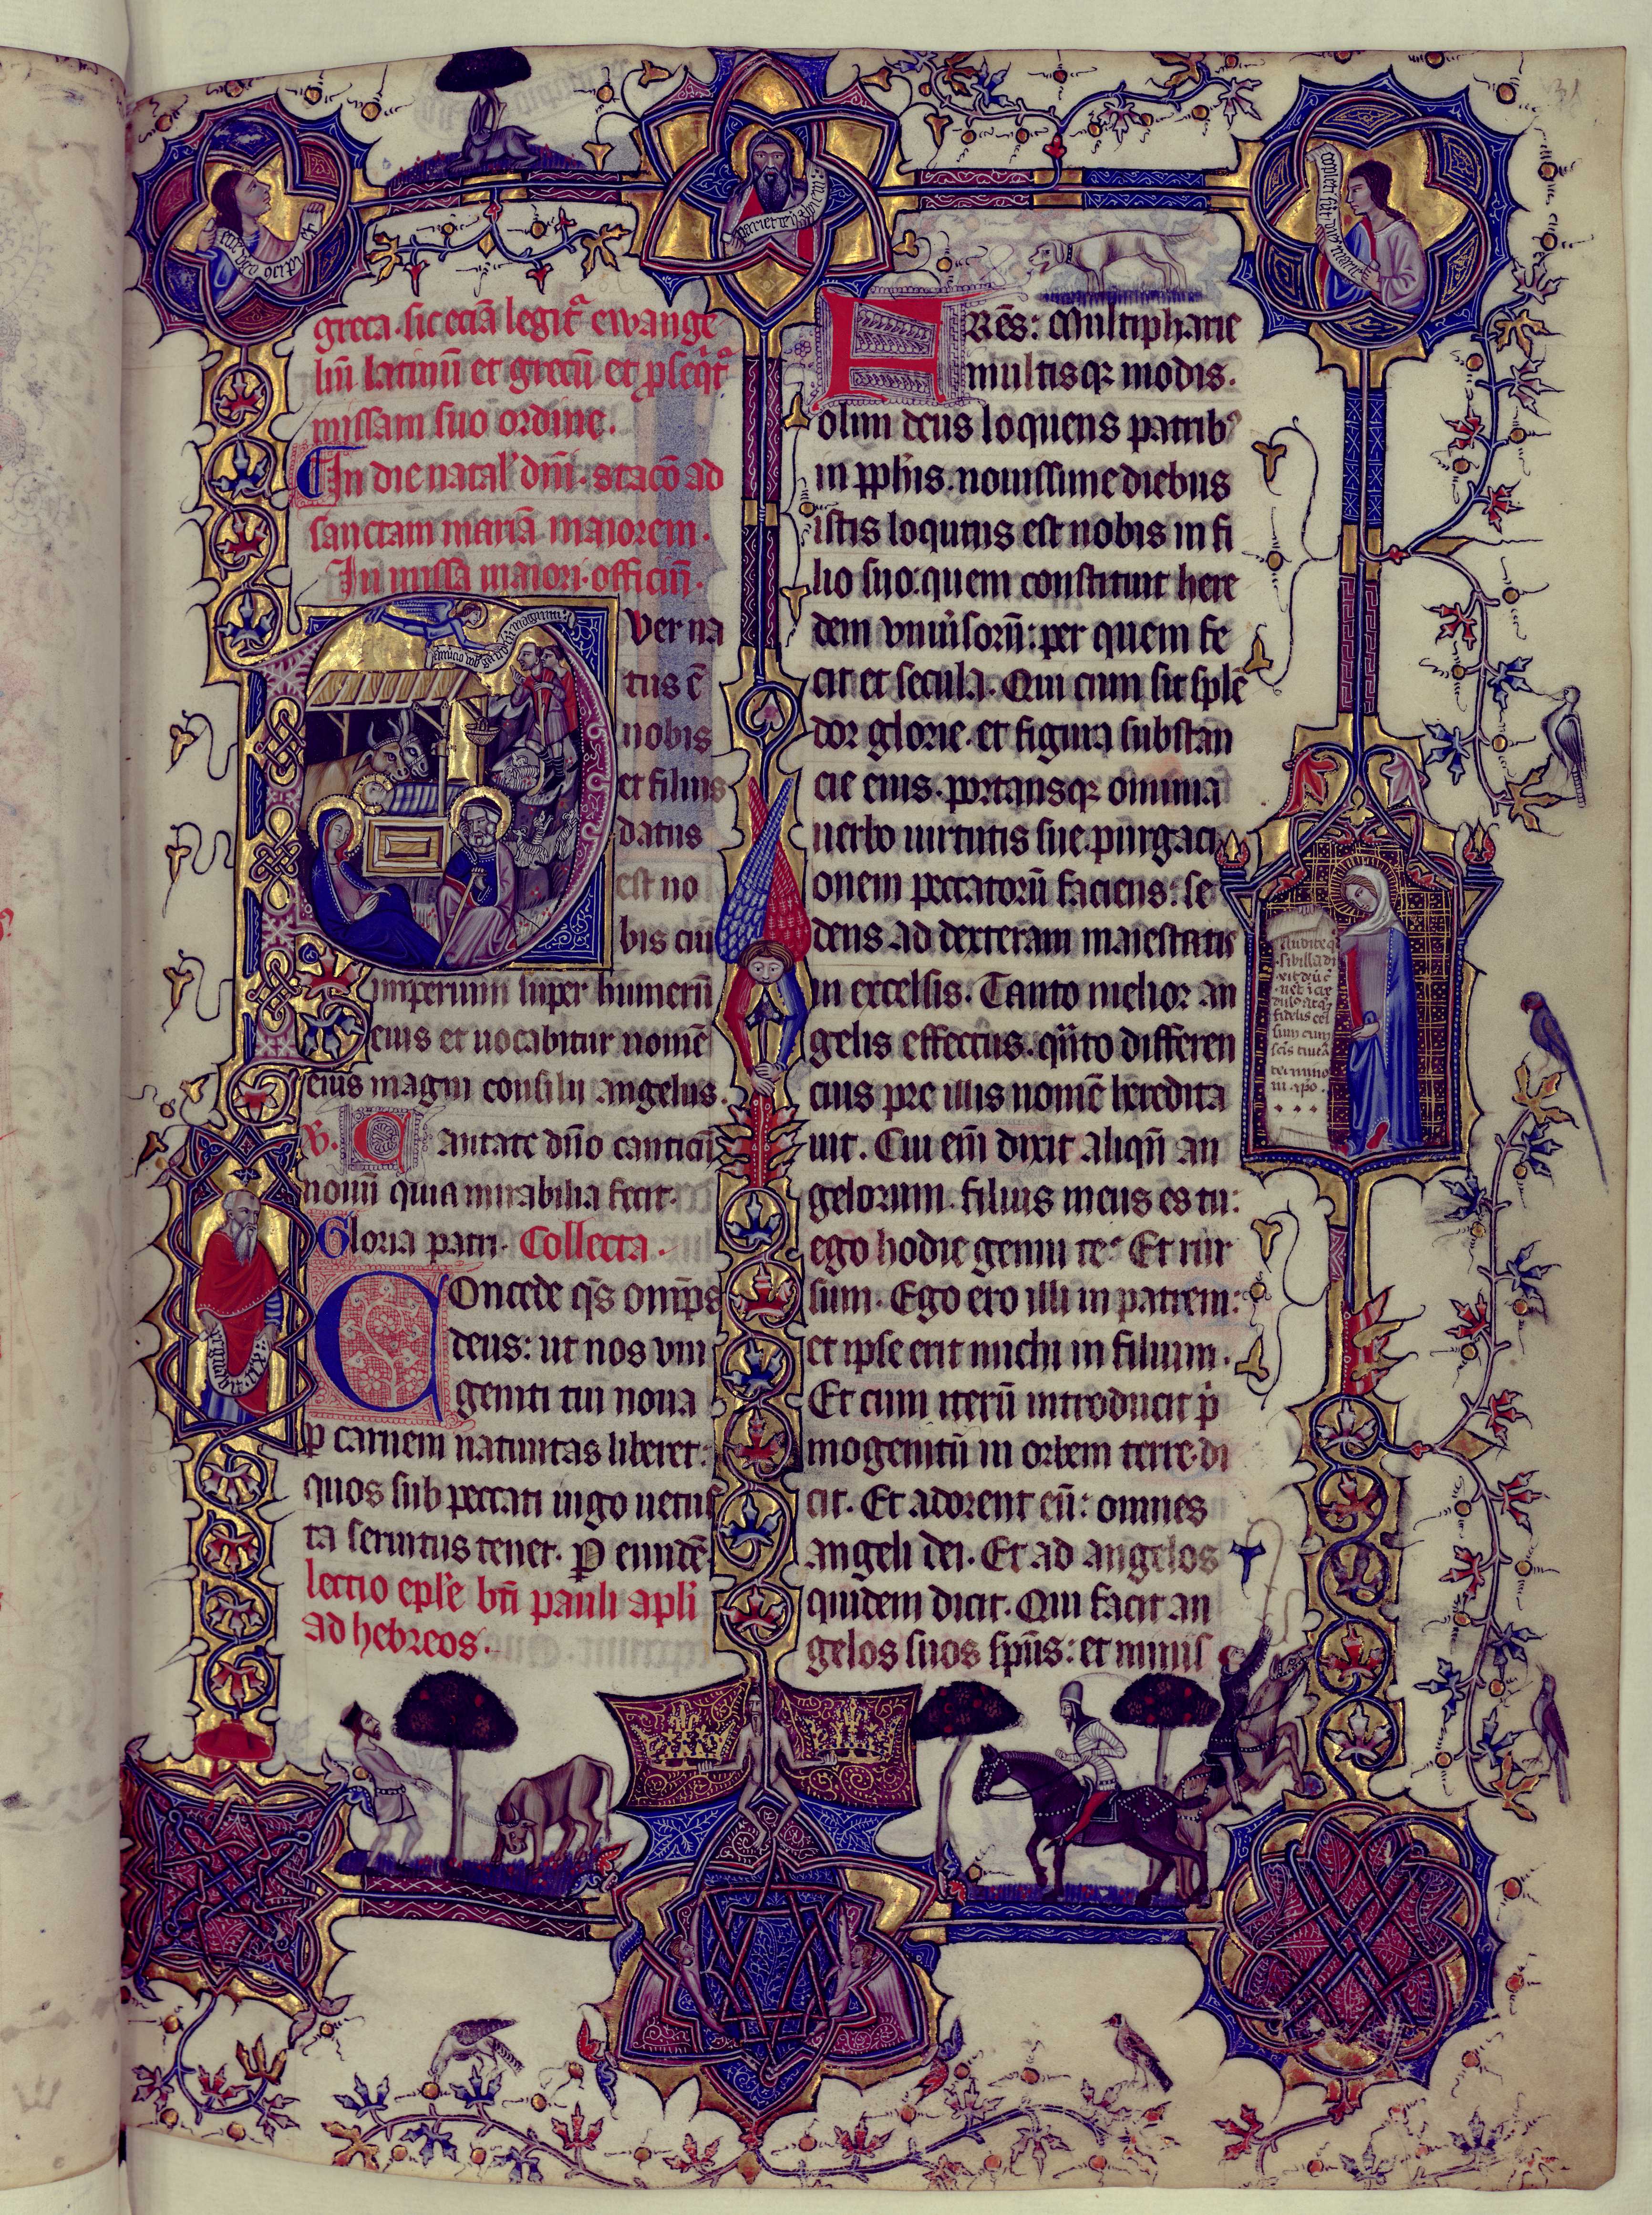 greca. sic eciā legit᷑ ewange
liū latinū et grecū et ꝓseqit᷑
missam suo ordine.
In die natal' dn̄i. stacō ad
sanctam mariā maiorem.
In missa maiori. officiū.
Puer na
tus ē
nobis
et filius
datus
est no
bis cui᷒
imperium super humerū
eius et uocabitur nomē
eius magni consilii angelus.
V. Cantate dn̄o canticū
nouū quia mirabilia fecit.
Gloria patri. Collecta.
Concede q̄s om̄ps
deus: ut nos vni
geniti tui noua
ꝑ carnem natiuitas liberet:
quos sub peccati iugo uetus
ta seruitus tenet. P eundē.
lectio ep̄le b̄ti pauli apl'i
ad hebreos.
FRēs: Multipharie
multisqꝫ modis.
olim deus loquens patrib᷒
in ꝓph̄is. nouissime diebus
istis loqutus est nobis in fi
lio suo: quem constituit here
dem vniu̓sorū: per quem fe
cit et secula. Qui cum sit splē
dor glorie. et figura substan
cie eius. portansqꝫ omnia
uerbo uirtutis sue. purgaci
onem peccatorū faciens: se
dens ad dexteram maiestatis
in excelsis. Tanto melior an
gelis effectus. qu̓to differen
cius pre illis nomē heredita
uit. Cui em̄ dixit aliqn̄ an
gelorum. filius meus es tu:
ego hodie genui te? Et rur
sum. Ego ero illi in patrem:
et ipse erit michi in filium.
Et cum iterū introducit p̓
mogenitū in orbem terre. di
cit. Et adorent eū: omnes
angeli dei. Et ad angelos
quidem dicit. Qui facit an
gelos suos sp̄us: et minis